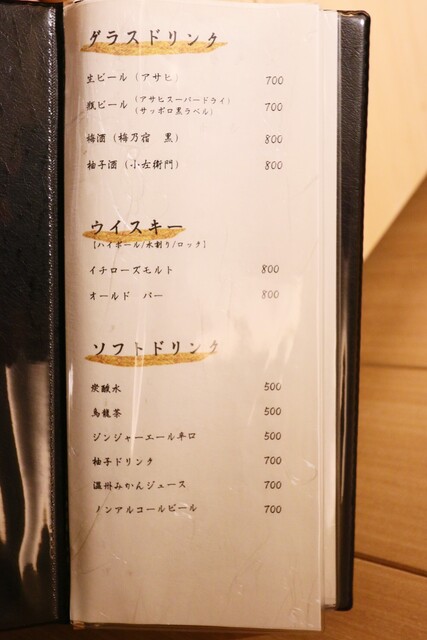 グラスドリンク
生ビール（アサヒ） 700
瓶ビール（アサヒスーパードライ）（サッポロ黒ラベル） 700
梅酒（梅乃宿 黒） 800
柚子酒（小左衛門） 800
ウイスキー
【ハイボール/水割り/ロック】
イチローズモルト 800
オールド パー 800
ソフトドリンク
炭酸水 500
烏龍茶 500
ジンジャーエール辛口 500
柚子ドリンク 700
温州みかんジュース 700
ノンアルコールビール 700